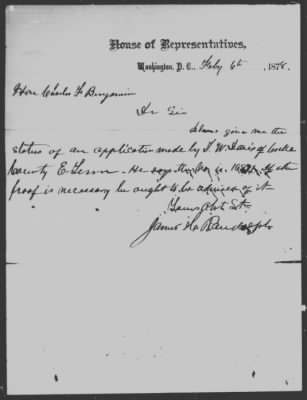 House of Representatives,
Washington, D. C., Feby 6th, 1878.
Hon Charles F Benjamin
Dr Sir
Please give me the
status of an application made by J. W. Davis of Cocke
County E. Tenn - He says the No is If other
proof is necessary he ought to be advised of it
Yours &c
James H. Randolph